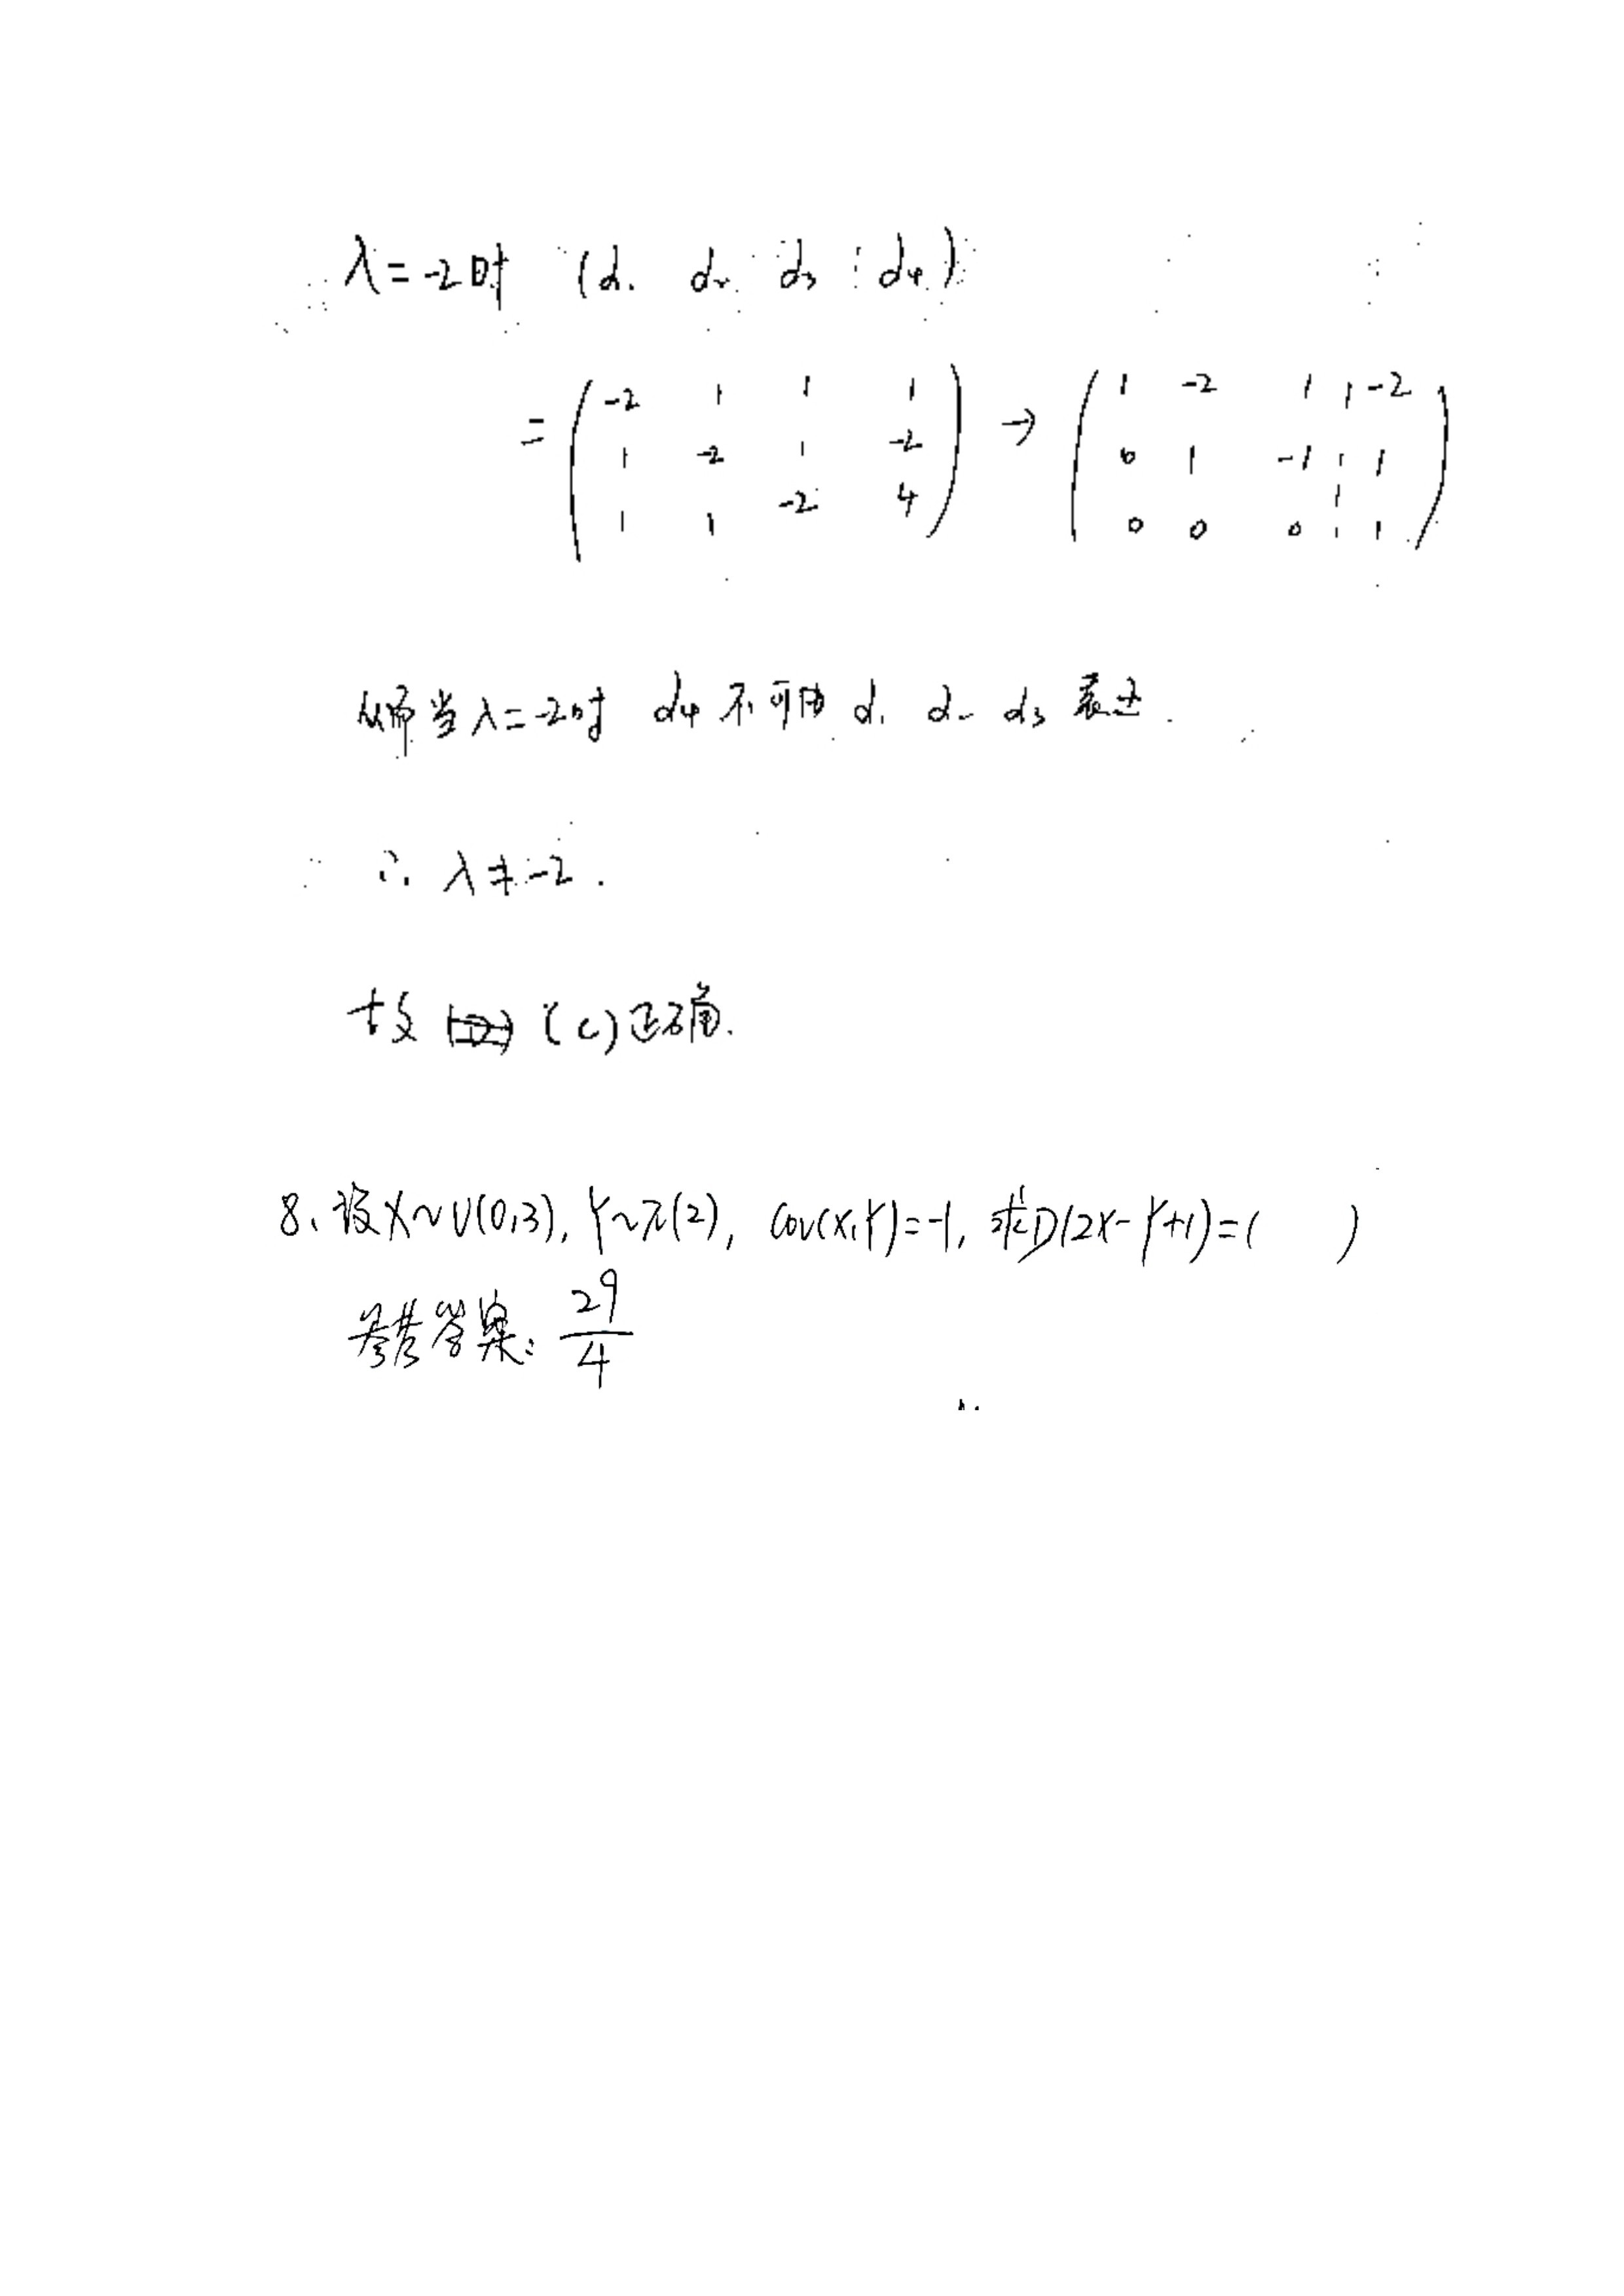 λ=-2时 (α₁ α₂ α₃ ⋮ α₄)
= ( -2 1 1 1 ) → ( 1 -2 1 ¦ -2 )
( 1 -2 1 -2 ) ( 0 1 -1 ¦ 1 )
( 1 1 -2 4 ) ( 0 0 0 ¦ 1 )
从而当λ=-2时 α₄不可由α₁ α₂ α₃表达.
∴ λ≠-2.
故 (C)正确.
8、设X~U(0,3), Y~π(2), Cov(X,Y)=-1, 求D(2X-Y+1)=( )
参考答案: 29/4